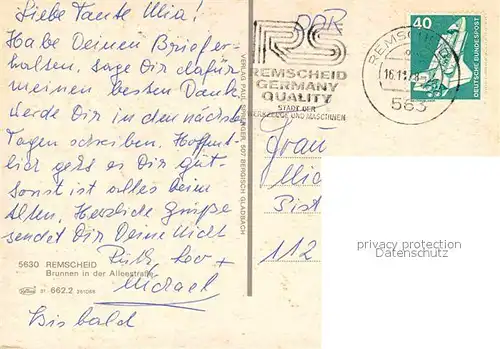 Liebe Tante Mia!
Habe Deinen Brief er-
halten. Sage Dir dafür
meinen besten Dank
werde Dir in den nächsten
Tagen schreiben. Hoffent-
lich geht es Dir gut.
Sonst ist alles beim
Alten. Herzliche Grüße
sendet Dir Deine Nichte
Ruth, Leo +
Michael
Bis bald
5630 REMSCHEID
Brunnen in der Alleestraße
31 662.2
VERLAG PAUL SPRENGER, 507 BERGISCH GLADBACH
DDR
RS
REMSCHEID
GERMANY
QUALITY
STADT DER
WERKZEUGE UND MASCHINEN
REMSCHEID
16.11.78
563
40
DEUTSCHE BUNDESPOST
Frau
112
privacy protection
Datenschutz